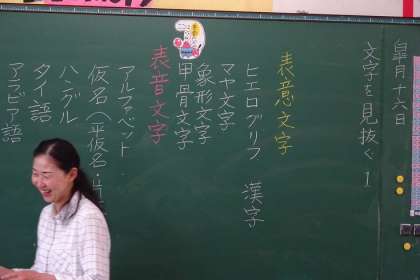 皐月 十六日
文字を見抜く 1
表意文字
ヒエログリフ 漢字
マヤ文字
象形文字
甲骨文字
表音文字
アルファベット
仮名(平仮名・片
ハングル
タイ語
アラビア語